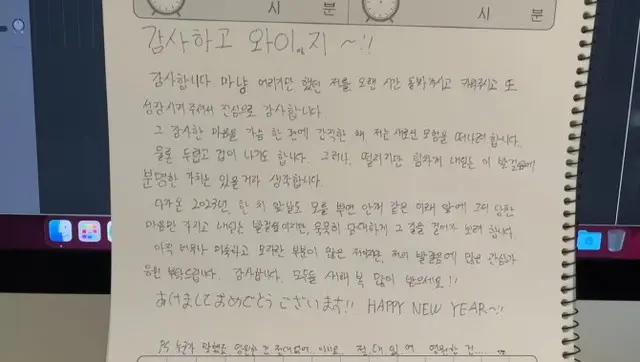 시 분
시 분
감사하고 와이지 ~!!
감사합니다 마냥 어리기만 했던 저를 오랜 시간 돌봐주시고 키워주시고 또
성장시켜 주셔서 진심으로 감사합니다
그 감사한 마음을 가슴 한 켠에 간직한 채 저는 새로운 모험을 떠나려 합니다.
물론 두렵고 겁이 나기도 합니다. 그러나, 떨리지만 힘차게 내딛는 이 발걸음에
분명한 가치는 있을거라 생각합니다.
다가온 2023년, 한 치 앞날도 모를 뿌연 안개 같은 미래 앞에 그저 당찬
마음만 가지고 내딛는 발걸음이지만, 묵묵히 담대하게 그 길을 걸어가 보려 합니다.
아직 너무나 미흡하고 모자란 부분이 많은 저이지만, 저의 발걸음에 많은 관심과
응원 부탁드립니다. 감사합니다. 모두들 새해 복 많이 받으세요!!
あけましておめでとうございます!! HAPPY NEW YEAR~!!
PS 누군가 말했죠 영원한 건 절대 없어